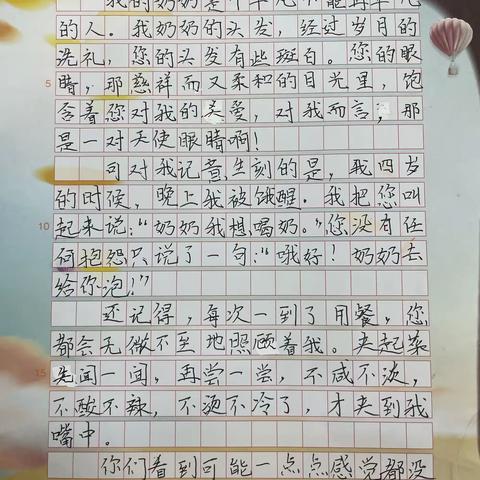 我的奶奶是个平凡不能再平凡
的人。我奶奶的头发，经过岁月的
洗礼，您的头发有些斑白。您的眼
5
睛，那慈祥而又柔和的目光里，饱
含着您对我的关爱，对我而言，那
是一对天使眼睛啊！
可对我记意生刻的是，我四岁
的时候，晚上我被饿醒。我把您叫
10
起来说：“奶奶我想喝奶。”您没有任
何抱怨只说了一句：“哦好！奶奶去
给你泡！”
还记得，每次一到了用餐，您
都会无微不至地照顾着我。夹起菜
15
先闻一闻，再尝一尝，不咸不淡，
不酸不辣，不烫不冷了，才夹到我
嘴中。
你们看到可能一点点感觉都没